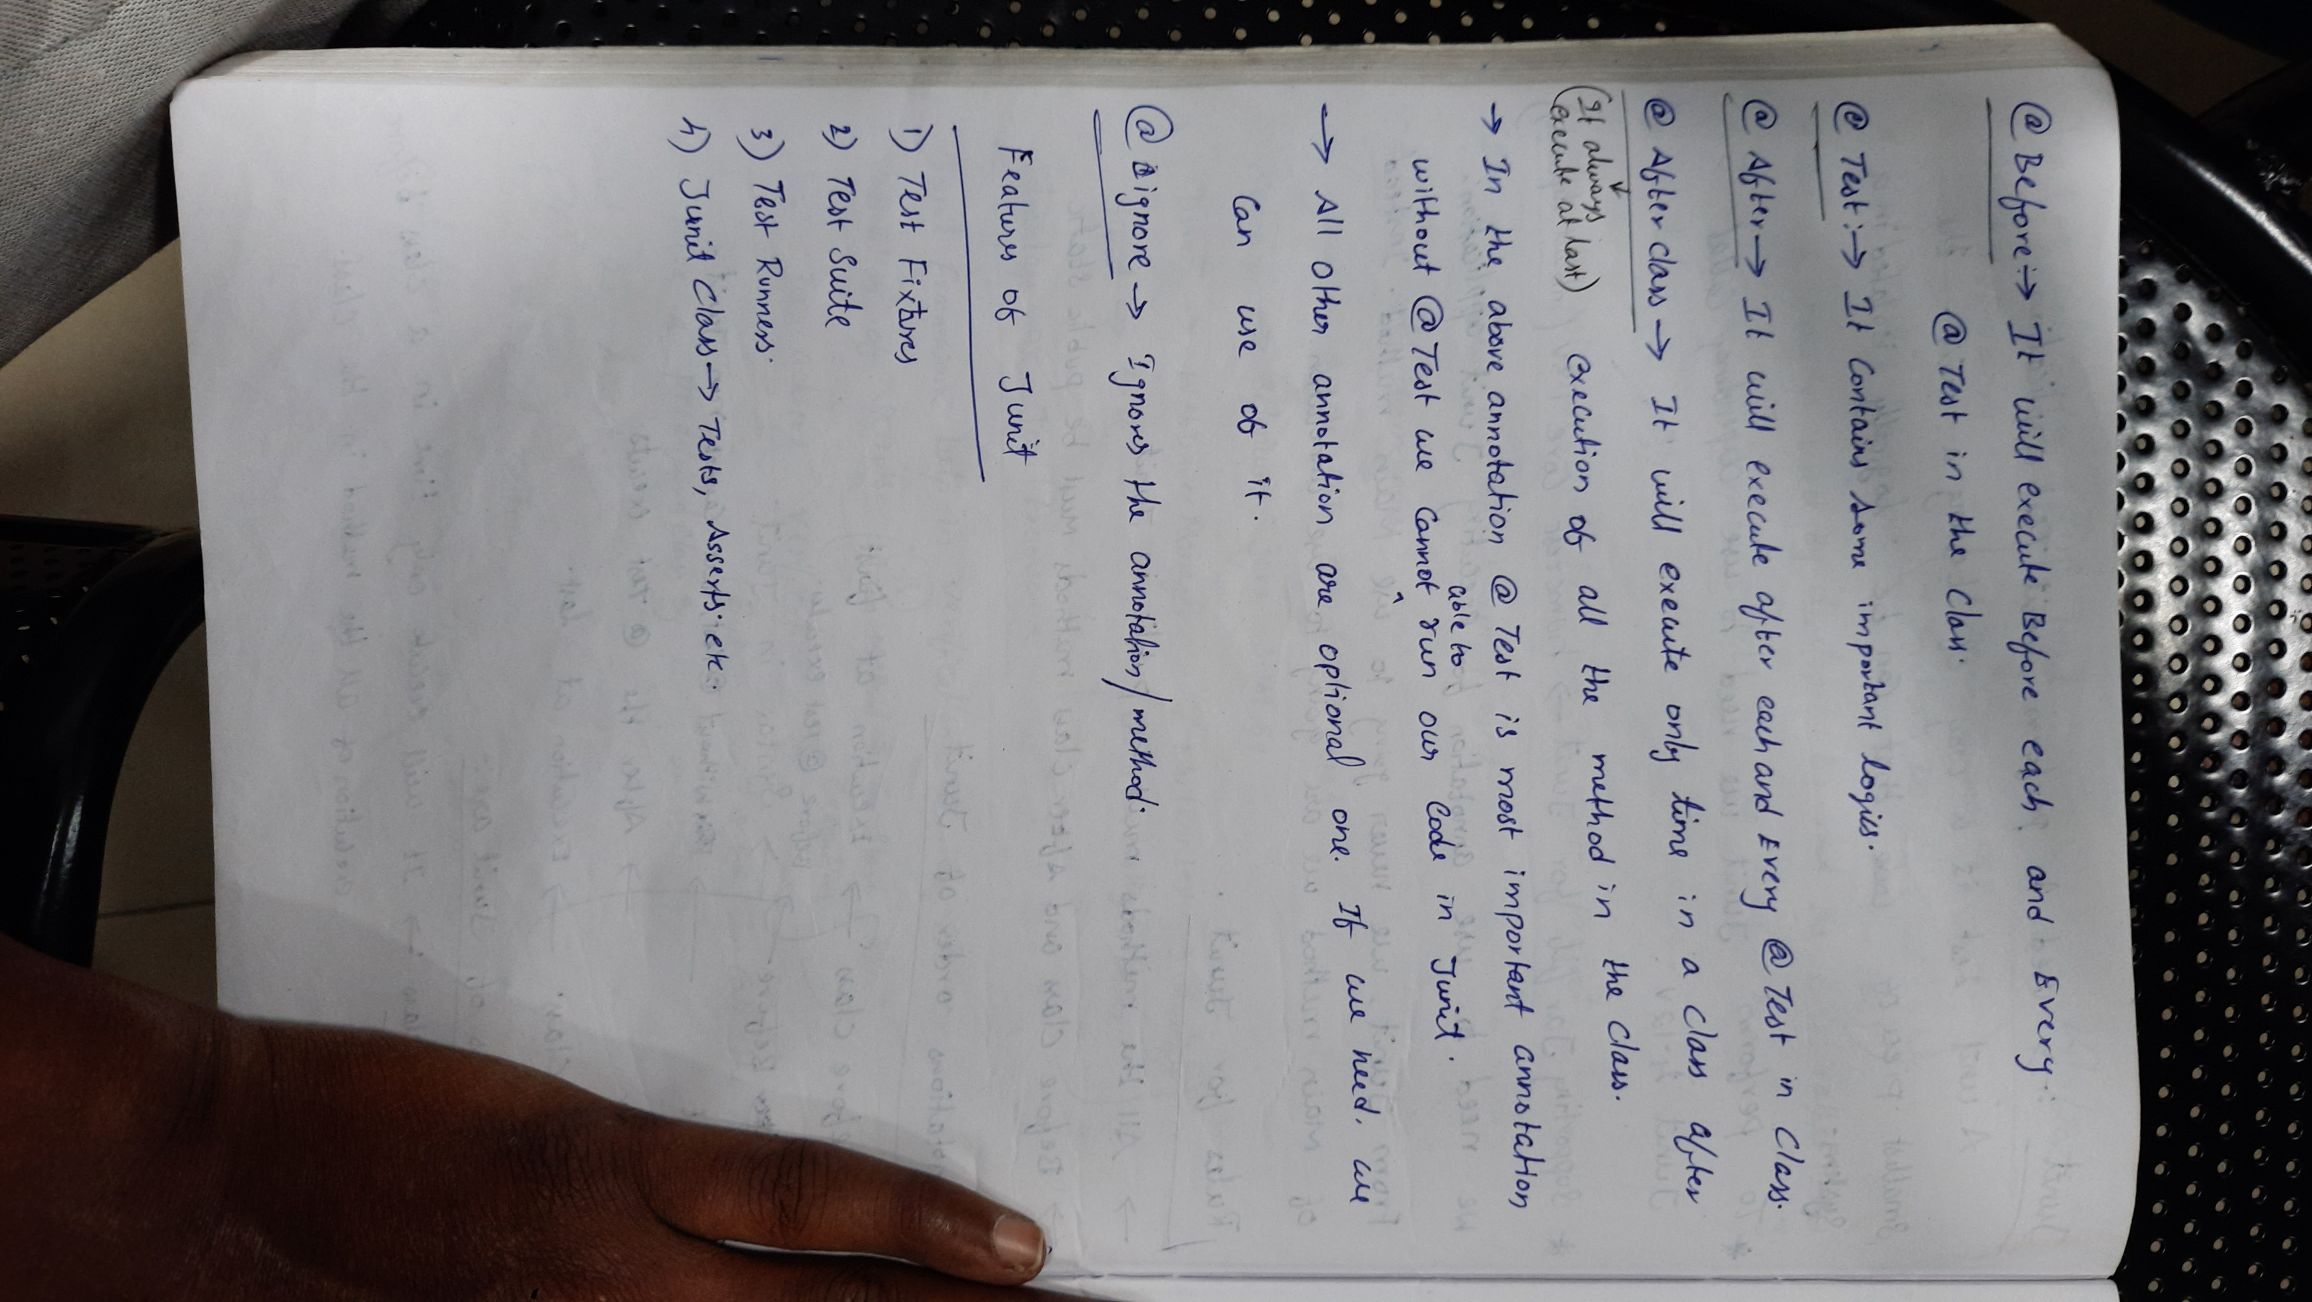 @Before:→ It will execute Before each and Every
@Test in the class.
@ Test:→ It contains some important logics.
@ After→ It will execute after each and Every @Test in class.
@ After class → It will execute only time in a class after
(It always execute at last) execution of all the method in the class.
→ In the above annotation @Test is most important annotation
without @Test we cannot able to run our code in Junit.
→ All other annotation are optional one. If we need, we
can use of it.
@ignore → Ignores the annotation/method.
Features of Junit
1) Test Fixtures
2) Test Suite
3) Test Runners.
4) Junit Class → Tests, Asserts etc